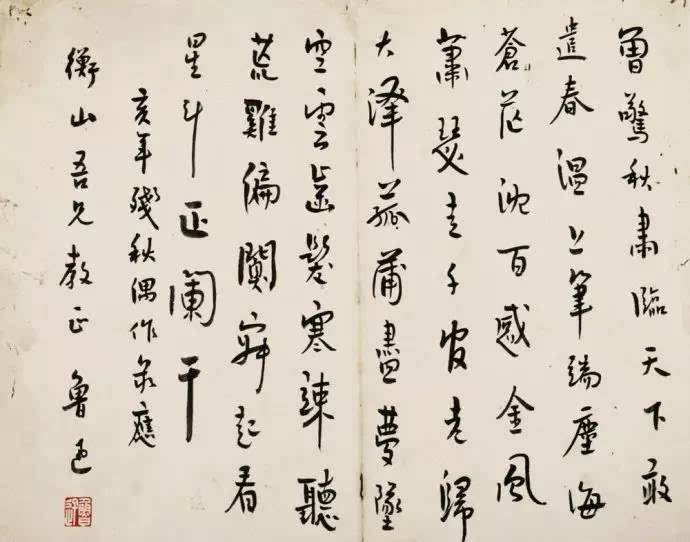 曾驚秋肅臨天下敢
遣春溫上筆端塵海
蒼茫沈百感金風
蕭瑟走千官老歸
大澤菰蒲盡夢墜
空雲齒髮寒竦聽
荒雞偏闃寂起看
星斗正闌干
亥年殘秋偶作录應
衡山吾兄教正 魯迅
魯迅